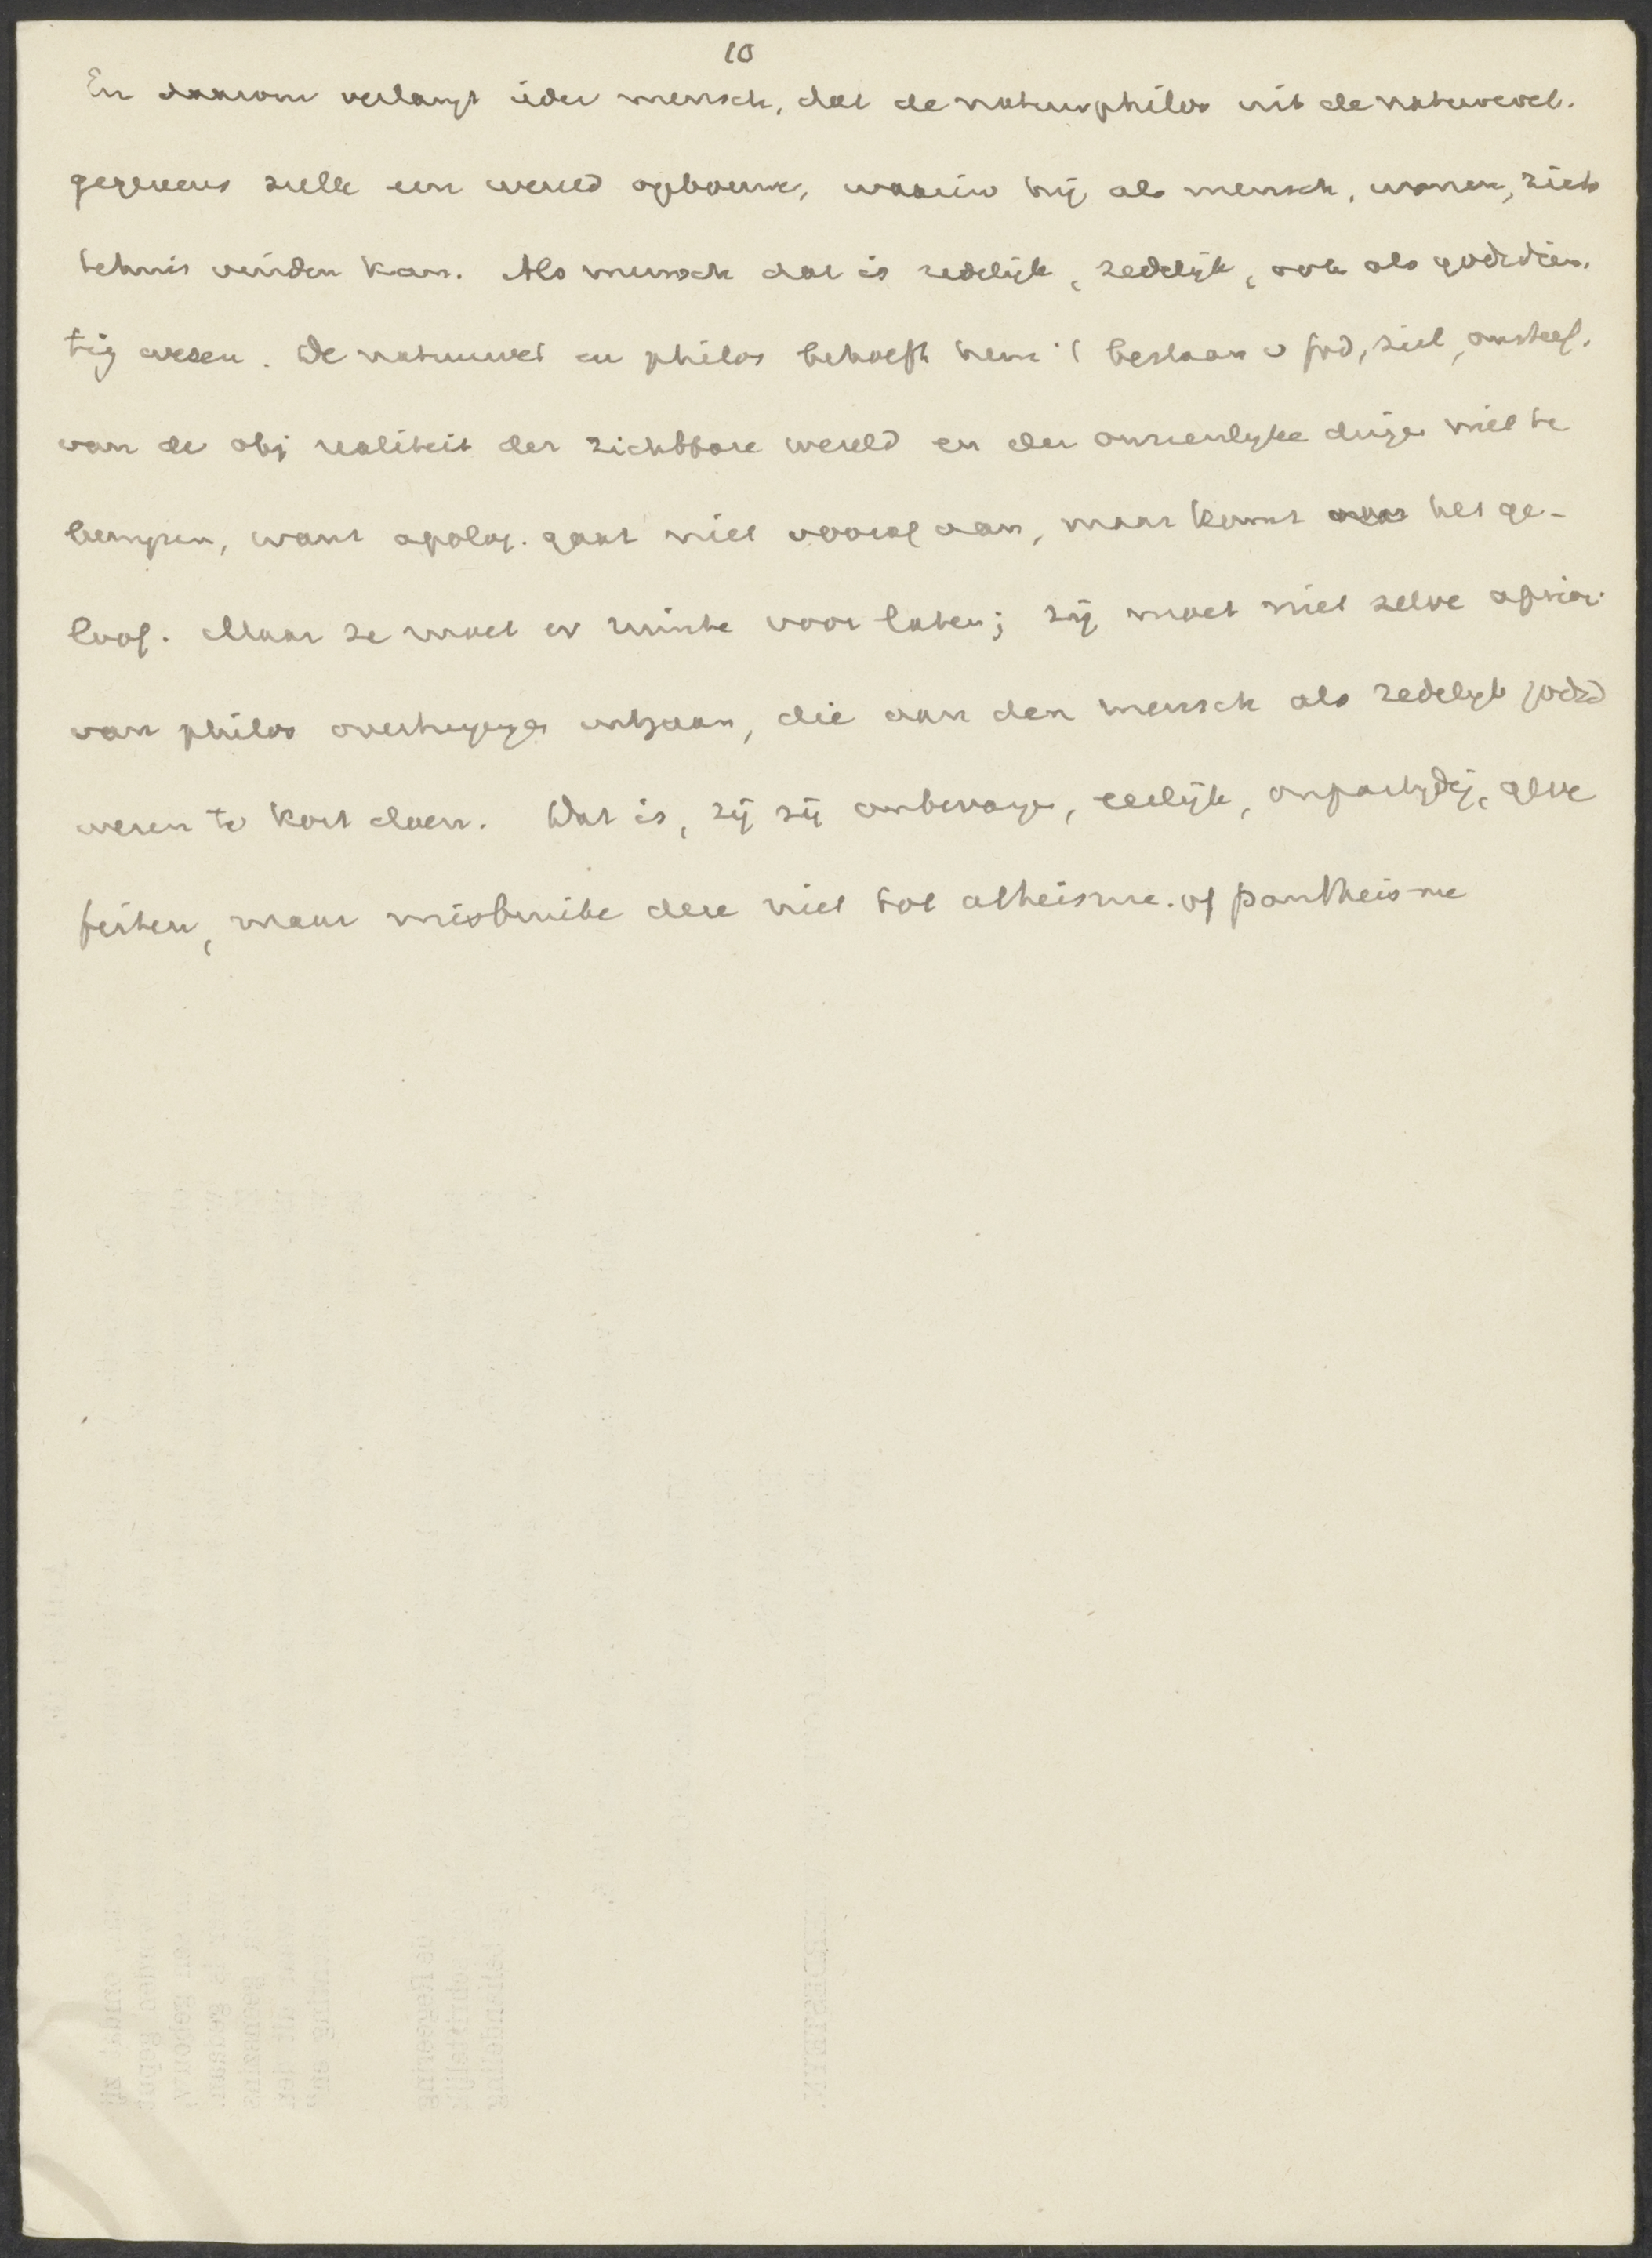 10
En daarom verlangt ieder mensch, dat de natuurphilos uit de natuurwet.
gegevens zulk een wereld opbouwe, waarin hij als mensch, wonen, zich
tehuis vinden kan. Als mensch dat is redelijk, zedelijk, ook als godsdien.
tig wezen. De natuurwet en philos behoeft hem 't bestaan v God, ziel, onsterf.
van de obj realiteit der zichtbare wereld en der onzienlyke dinge niet te
bewyzen, want apolog. gaat niet vooraf aan, maar komt het ge-
loof. Maar ze moet er ruimte voor laten; zij moet niet zelve aprior.
van philos overtuyinge uitgaan, die aan den mensch als zedelyk godsd
wezen te kort doen. Dat is, zij zij onbevange, eerlijk, onpartydig, geve
feiten, maar misbruike deze niet tot atheisme. of pantheisme